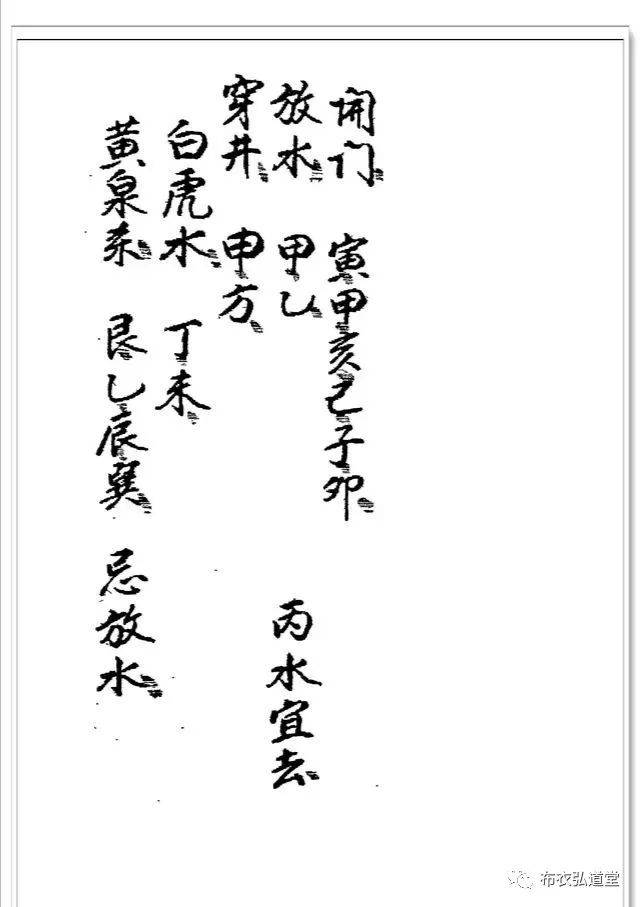 开门 寅甲亥己子卯
放水 甲乙 丙水宜去
穿井 申方
白虎水 丁未
黄泉杀 艮乙辰巽 忌放水
布衣弘道堂